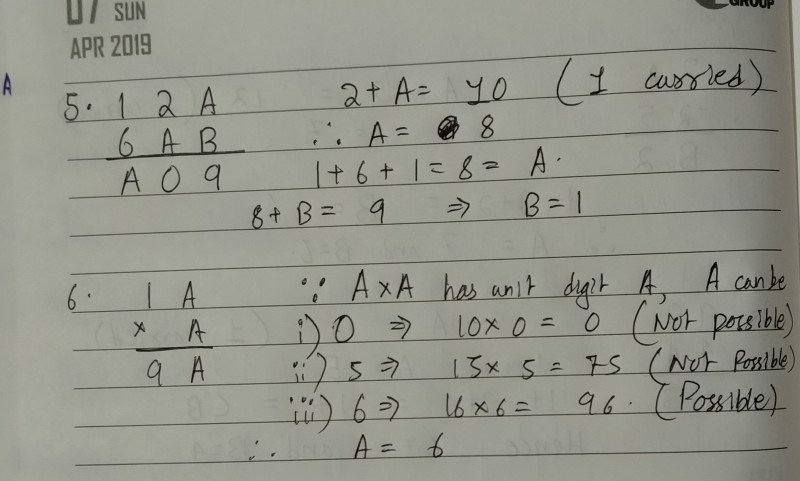 07 SUN
APR 2019
GROUP
A
5. 1 2 A 2 + A = 10 (1 carried)
6 A B ∴ A = 8
A 0 9 1 + 6 + 1 = 8 = A.
8 + B = 9 ⇒ B = 1
6. 1 A ∵ A × A has unit digit A, A can be
× A i) 0 ⇒ 10 × 0 = 0 (Not possible)
9 A ii) 5 ⇒ 15 × 5 = 75 (Not Possible)
iii) 6 ⇒ 16 × 6 = 96. (Possible)
∴ A = 6